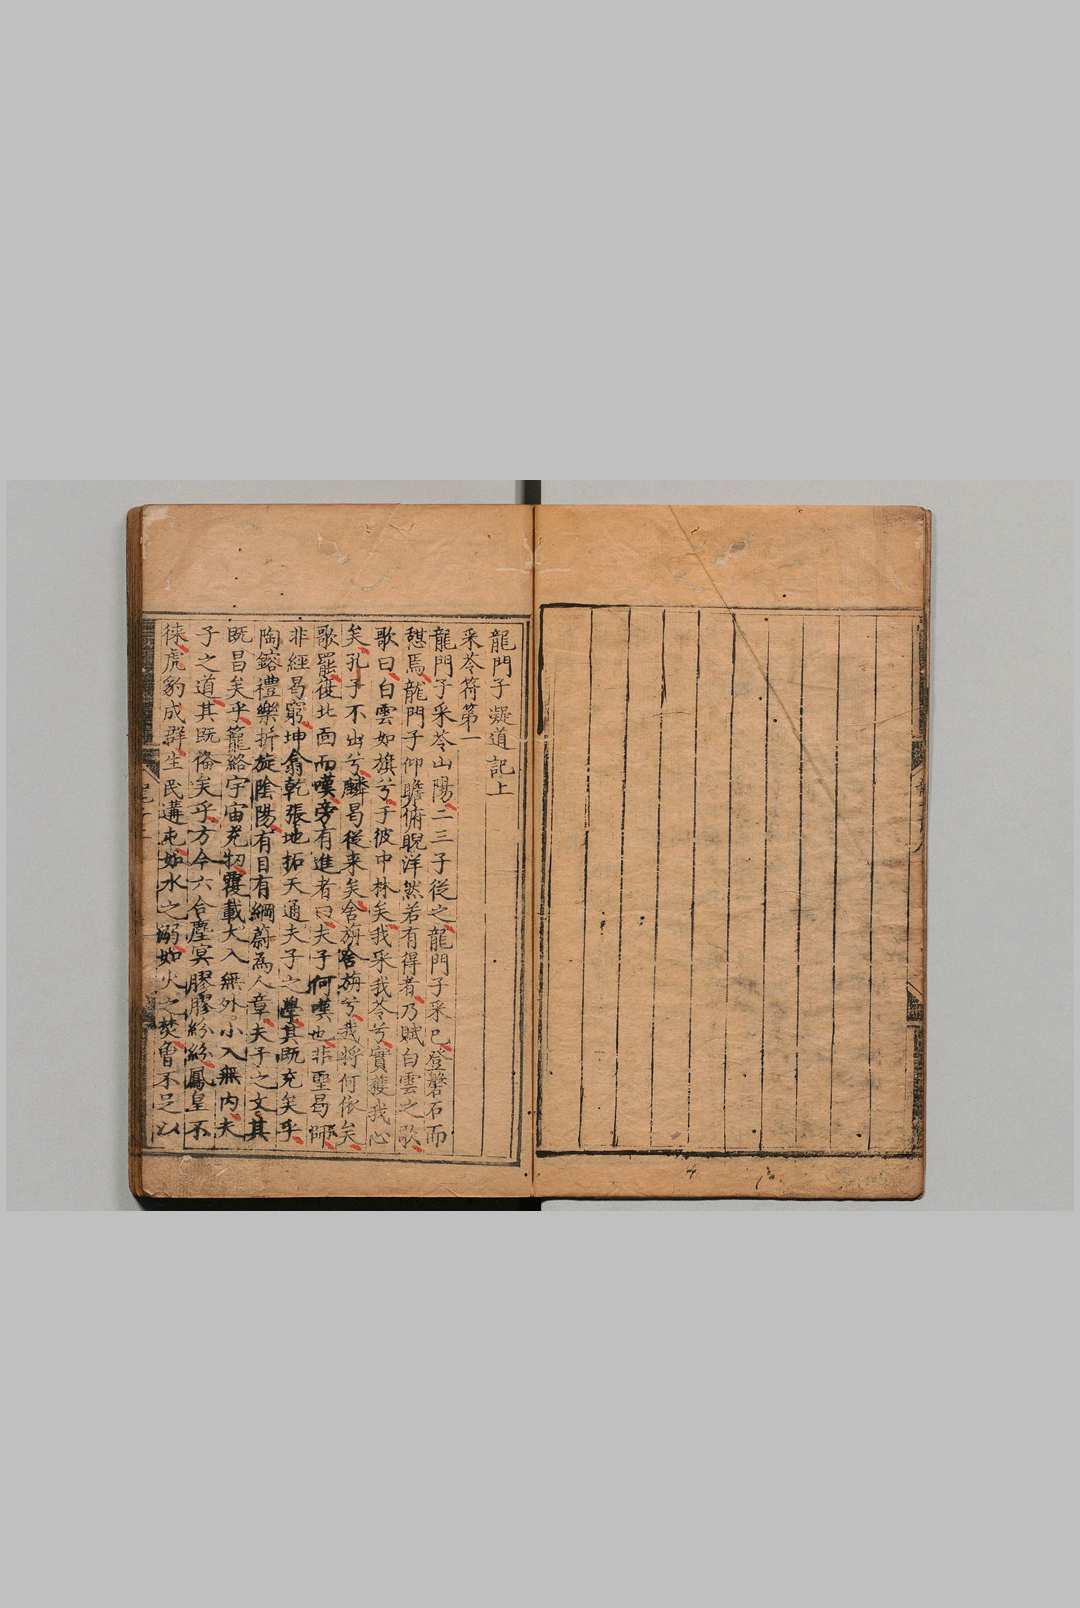 龍門子凝道記上
采苓符第一
龍門子采苓山陽二三子從之龍門子采已登磐石而
憇焉龍門子仰瞻俯睨洋然若有得者乃賦白雲之歌
歌曰白雲如旗兮于彼中林矣我采我苓兮實獲我心
矣孔子不出兮麟曷從来矣舍旃舍旃兮我將何依矣
歌罷復北面而嘆旁有進者曰夫子何嘆也非聖曷師
非經曷窮坤翕乾張地拓天通夫子之學其既充矣乎
陶鎔禮樂折旋陰陽有目有綱蔚為人章夫子之文其
既昌矣乎籠絡宇宙充牣覆載大入無外小入無内夫
子之道其既俻矣乎方今六合塵冥膠膠紛絲鳳皇不
徠虎豹成群生民遘屯如水之溺如火之焚曾不足以